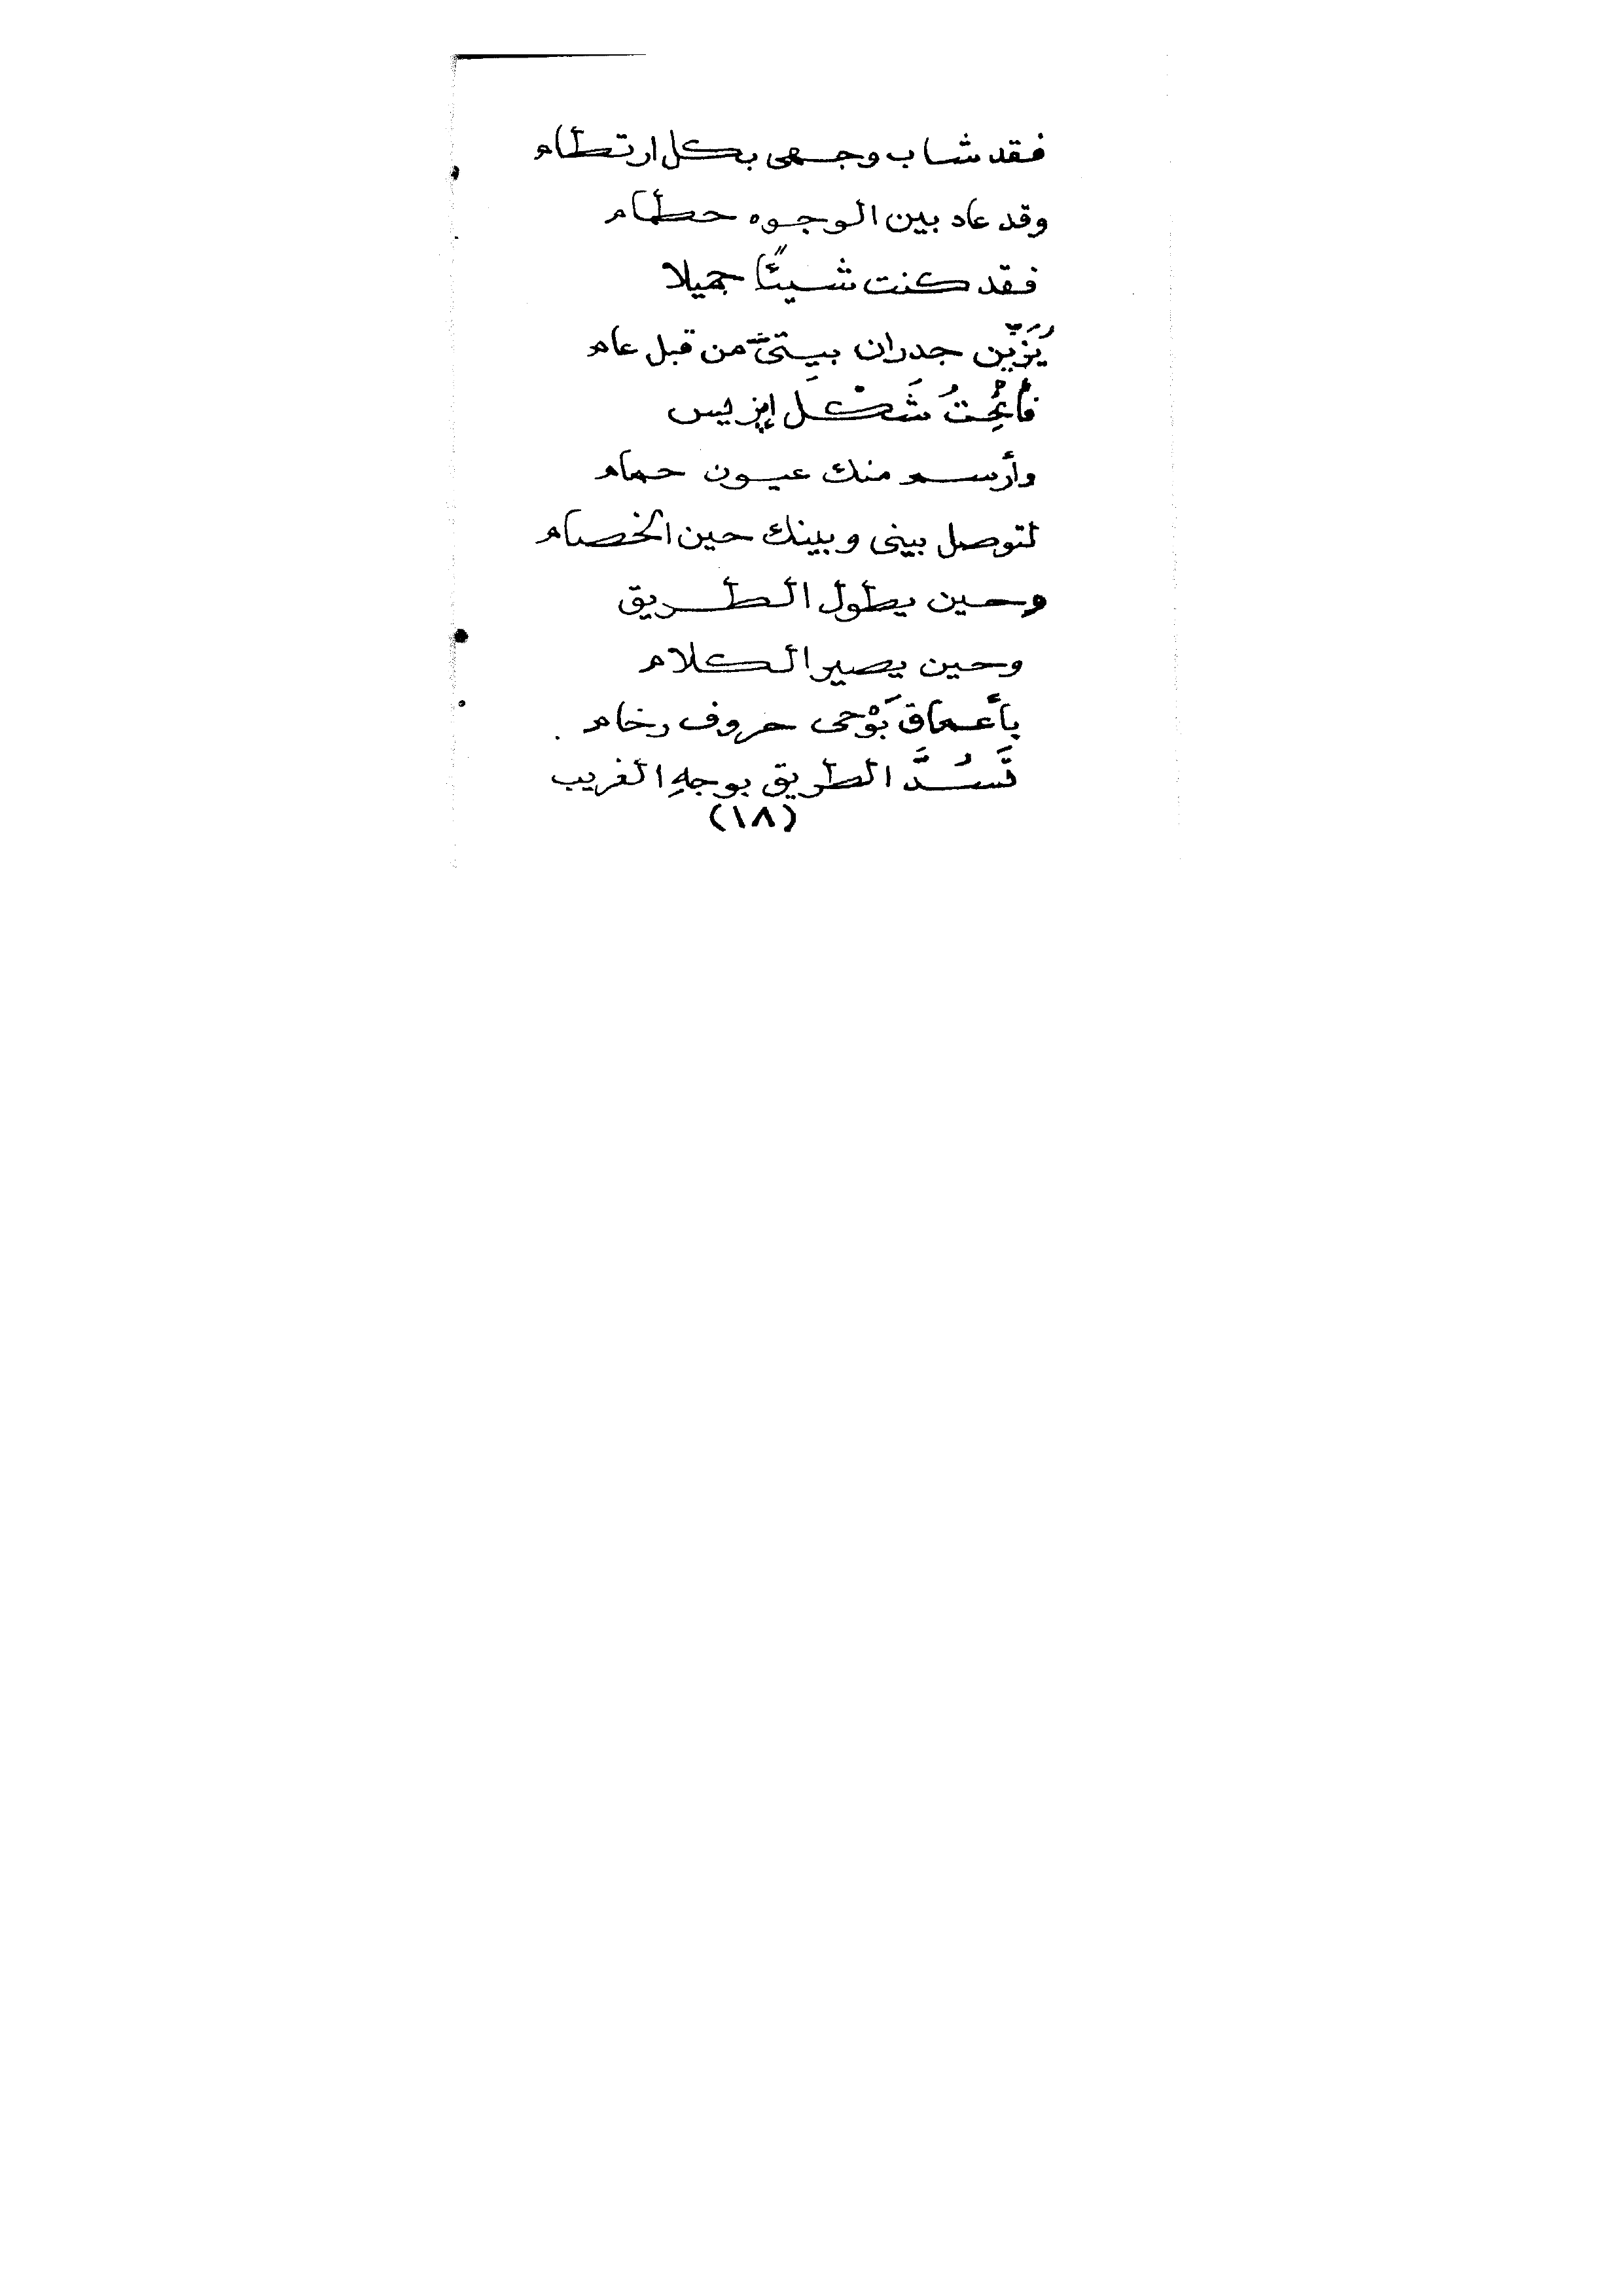 فقد شاب وجهى بكل ارتطام
وقد عاد بين الوجوه حطام
فقد كنت شيئًا جميلا
يُزَيِّن جدران بيتىَّ من قبل عام
فأنْحِتُ شَكْلَ إيزيس
وأرسم منك عيون حمام
لتوصل بينى وبينك حين الخصام
وحين يطول الطريق
وحين يصير الكلام
بأعماق بَوْحى حروف رخام
تَسُدَّ الطريق بوجهِ الغريب
(١٨)